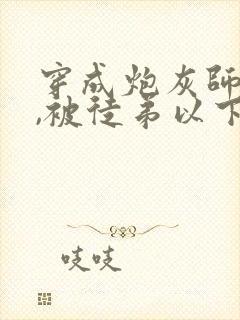 穿成炮灰師
,被徒弟以下
吱吱